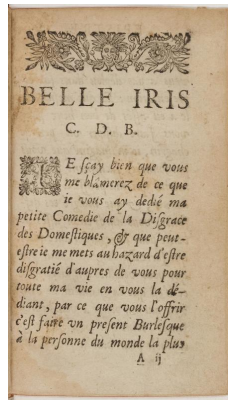 BELLE IRIS
C. D. B.
IE sçay bien que vous
me blâmerez de ce que
ie vous ay dedié ma
petite Comedie de la Disgrace
des Domestiques, & que peut-
estre ie me mets au hazard d'estre
disgratié d'aupres de vous pour
toute ma vie en vous la dé-
diant, par ce que vous l'offrir
c'est faire vn present Burlesque
à la personne du monde la plus
A ij